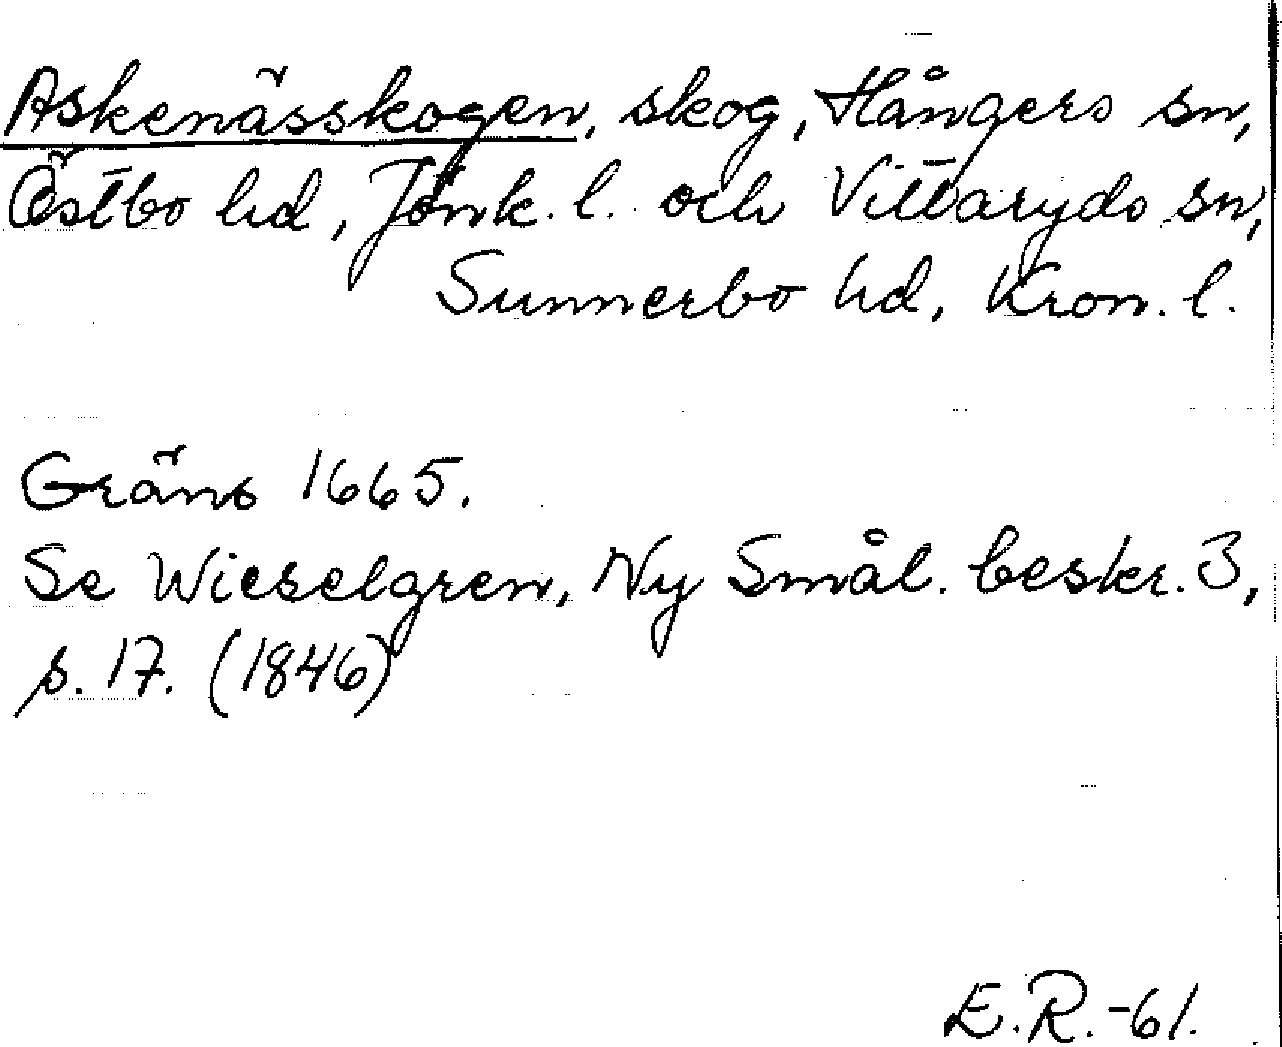 Askenässkogen, skog, Hångers sn,
Östbo hd, Jönk. l. och Vittaryds sn,
Sunnerbo hd, Kron. l.
Gräns 1665.
Se Wieselgren, Ny Smål. beskr. 3,
s. 17. (1846)
E.R.-61.